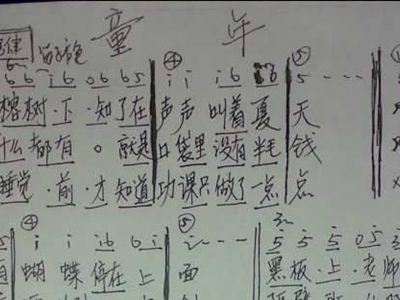 童年
④ ⑤
6 6 i 6 0 6 6 5 i i i 6 5 - - -
榕树·下·知了在声声叫着夏天
什么都有。就是口袋里没有半毛钱
睡觉·前·才知道功课只做了一点点
④ ⑤
i i i 6 6 i i - - - 5 5 5 0 5
蝴蝶停在上面 黑板·上·老师